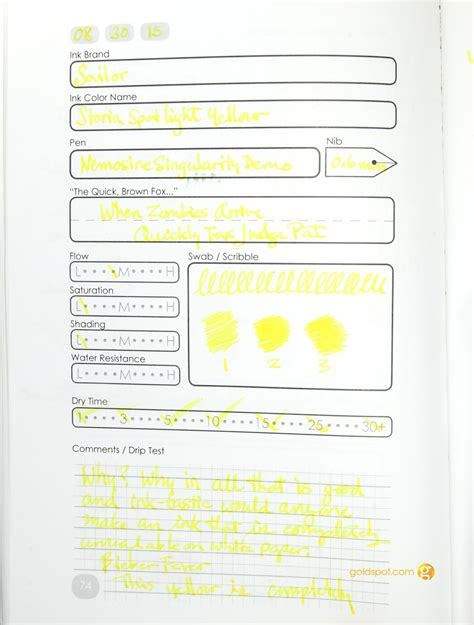 08 30 15
Ink Brand
Sailor
Ink Color Name
Storia Spotlight Yellow
Pen
Nib
Nemosine Singularity Demo
0.6mm
"The Quick, Brown Fox..."
When Zombies Arrive
Quickly Fax Judge Pat
Flow
Swab / Scribble
L M H
Saturation
L M H
Shading
L M H
Water Resistance
L M H
1 2 3
Dry Time
1 3 5 10 15 25 30+
Comments / Drip Test
Why? Why in all that is good
and ink-tastic would anyone
make an ink that is completely
unreadable on white paper.
Bieber Fever
This yellow is completely
74
goldspot.com g